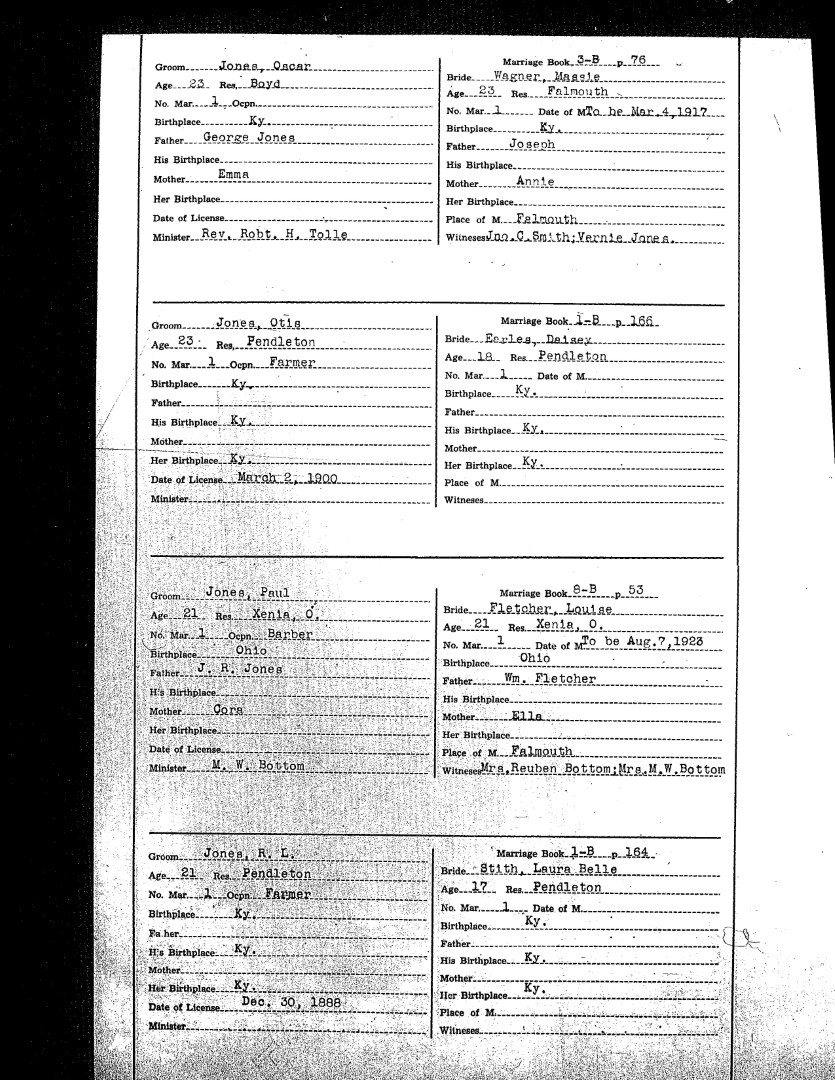 Groom Jones, Oscar
Age 23 Res. Boyd
No. Mar. 1 Ocpn.
Birthplace Ky.
Father George Jones
His Birthplace
Mother Emma
Her Birthplace
Date of License
Minister Rev. Robt. H. Tolle
Marriage Book 3-B p. 76
Bride Wagner, Massie
Age 23 Res Falmouth
No. Mar. 1 Date of M. To be Mar. 4, 1917
Birthplace Ky.
Father Joseph
His Birthplace
Mother Annie
Her Birthplace
Place of M. Falmouth
Witnesses Jno. C. Smith; Vernie Jones.
Groom Jones, Otis
Age 23 Res. Pendleton
No. Mar. 1 Ocpn. Farmer
Birthplace Ky.
Father
His Birthplace Ky.
Mother
Her Birthplace Ky.
Date of License March 2, 1900
Minister
Marriage Book 1-B p. 166
Bride Earles, Daisey
Age 18 Res Pendleton
No. Mar. 1 Date of M.
Birthplace Ky.
Father
His Birthplace Ky.
Mother
Her Birthplace Ky.
Place of M.
Witnesses
Groom Jones, Paul
Age 21 Res. Xenia, O.
No. Mar. 1 Ocpn. Barber
Birthplace Ohio
Father J. R. Jones
H's Birthplace
Mother Cora
Her Birthplace
Date of License
Minister M. W. Bottom
Marriage Book 8-B p. 53
Bride Fletcher, Louise
Age 21 Res Xenia, O.
No. Mar. 1 Date of M. To be Aug. 7, 1923
Birthplace Ohio
Father Wm. Fletcher
His Birthplace
Mother Ella
Her Birthplace
Place of M. Falmouth
Witnesses Mrs. Reuben Bottom; Mrs. M.W. Bottom
Groom Jones, R. L.
Age 21 Res. Pendleton
No. Mar. 1 Ocpn. Farmer
Birthplace Ky.
Father
H's Birthplace Ky.
Mother
Her Birthplace Ky.
Date of License Dec. 30, 1888
Minister
Marriage Book 1-B p. 164
Bride Stith, Laura Belle
Age 17 Res. Pendleton
No. Mar. 1 Date of M.
Birthplace Ky.
Father
His Birthplace Ky.
Mother
Her Birthplace Ky.
Place of M.
Witnesses